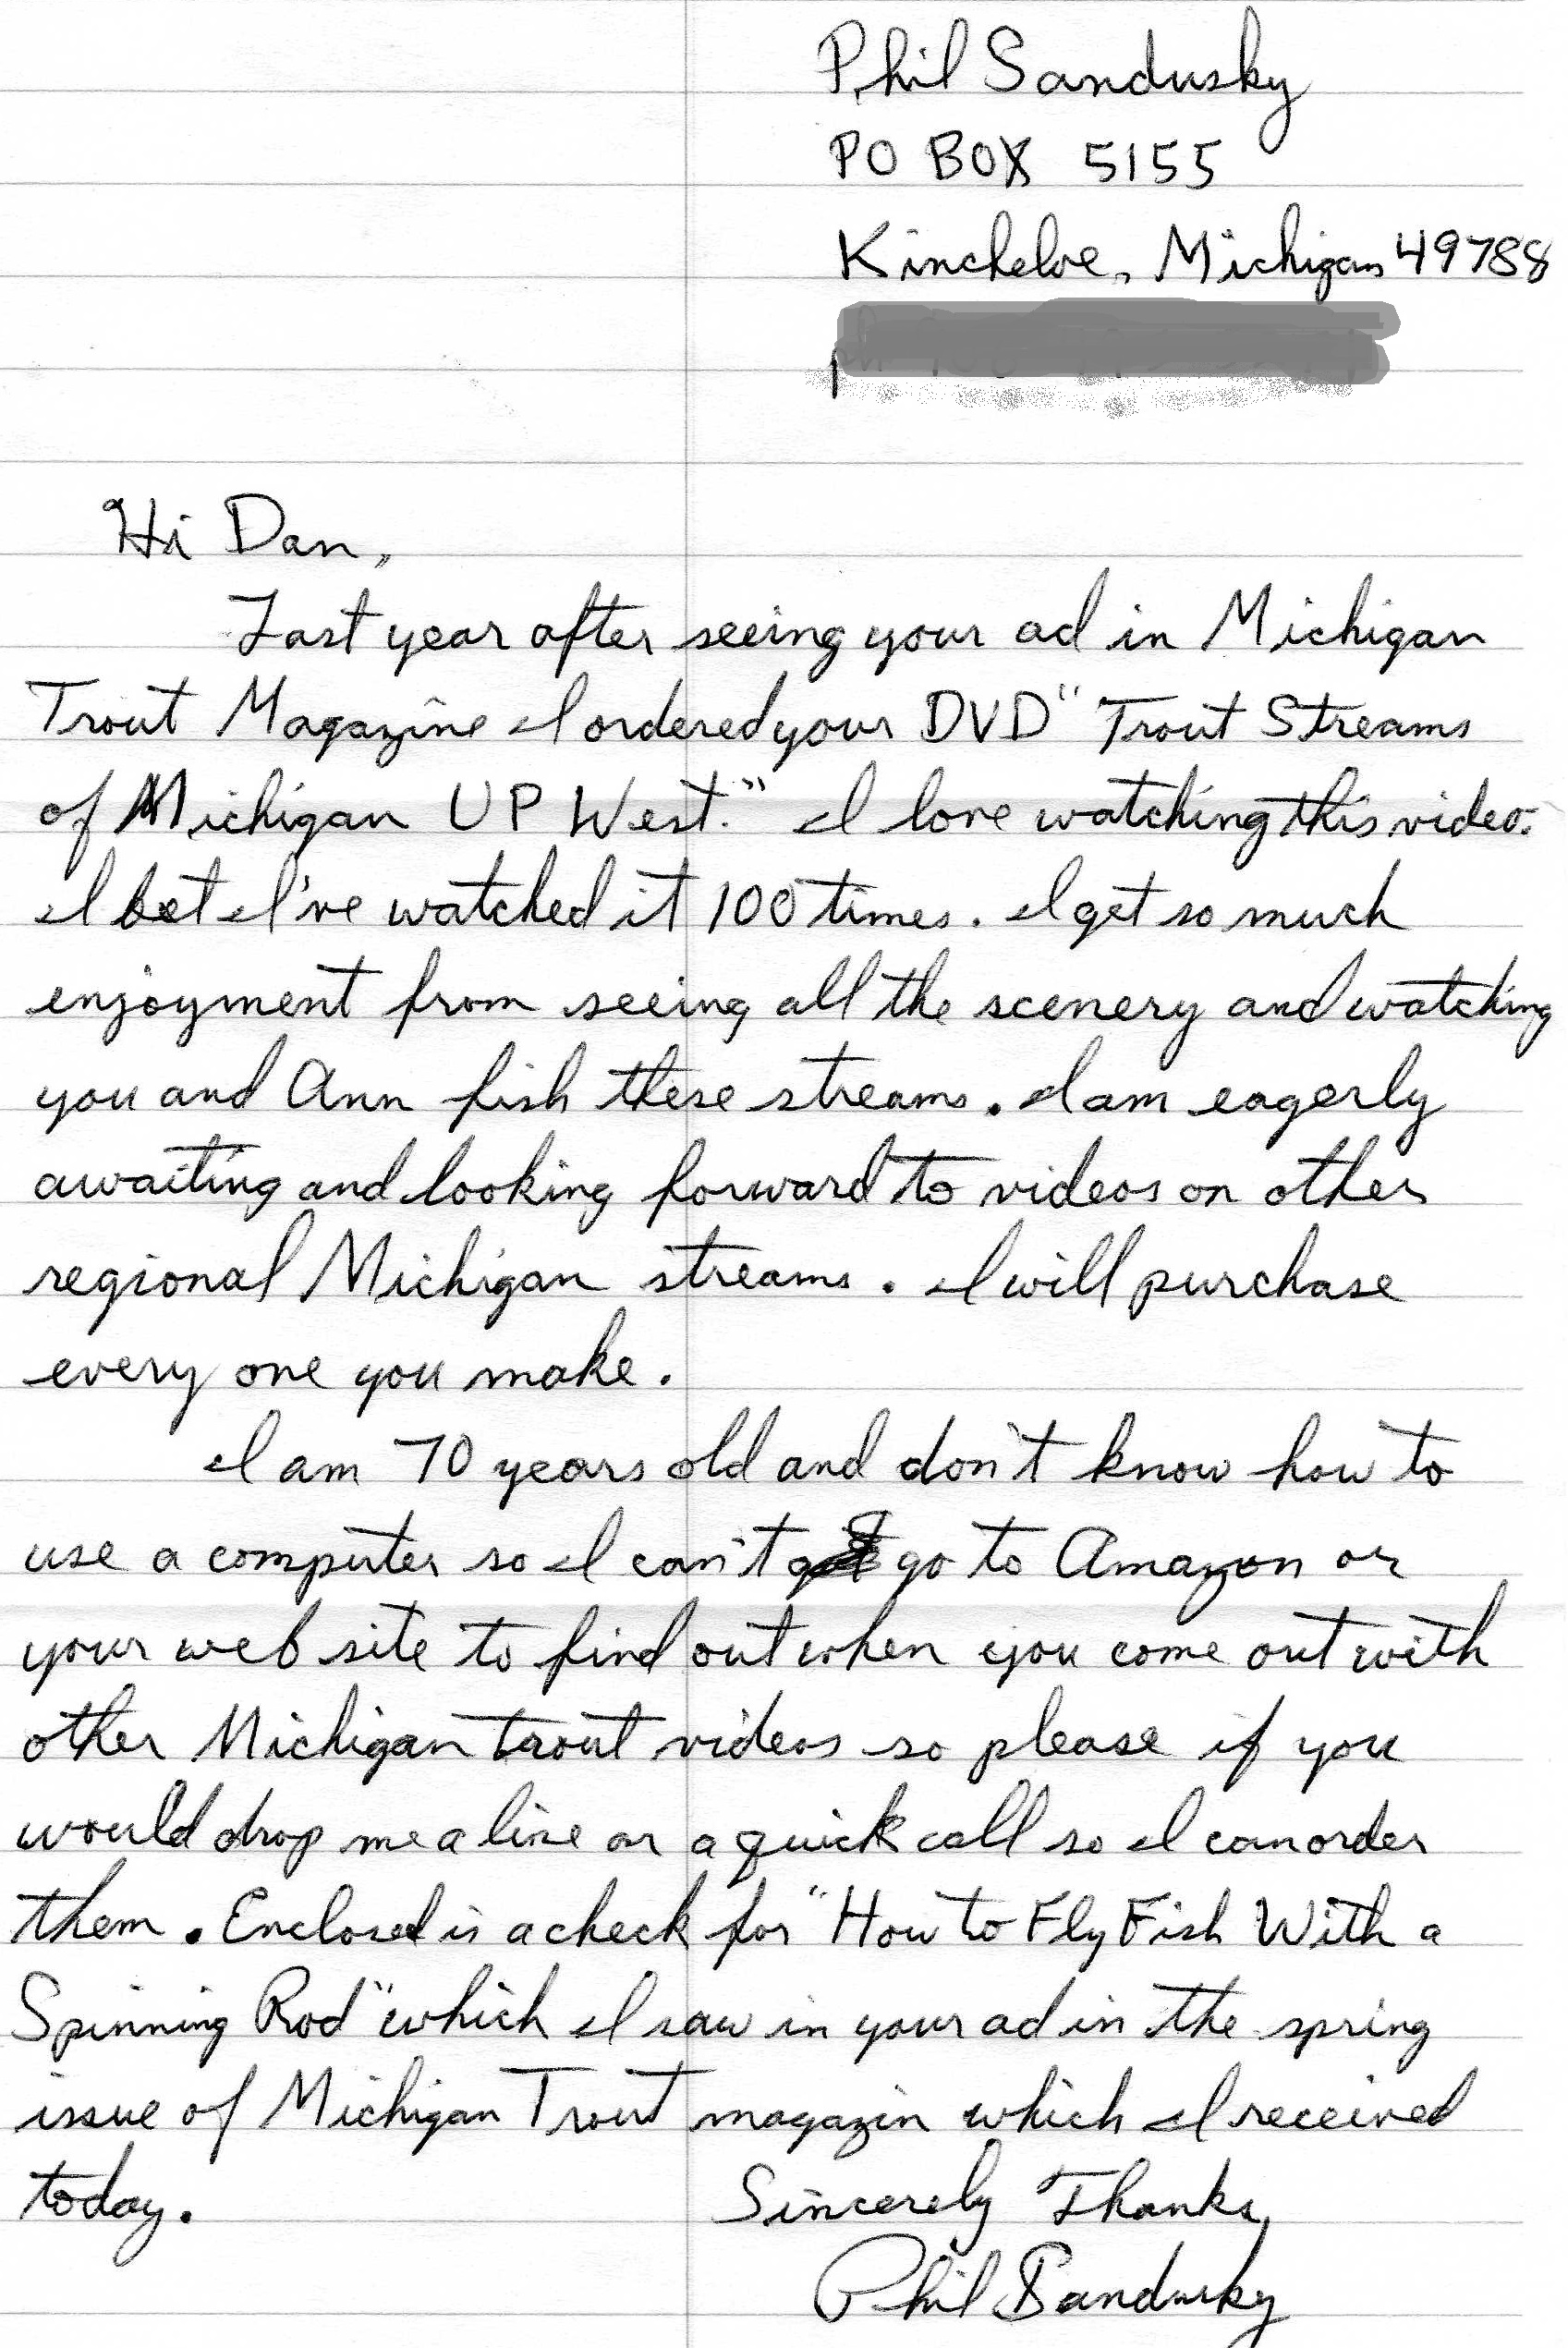 Phil Sandusky
PO BOX 5155
Kincheloe, Michigan 49788
ph
Hi Dan,
Last year after seeing your ad in Michigan
Trout Magazine I ordered your DVD "Trout Streams
of Michigan UP West." I love watching this video.
I bet I've watched it 100 times. I get so much
enjoyment from seeing all the scenery and watching
you and Ann fish these streams. I am eagerly
awaiting and looking forward to videos on other
regional Michigan streams. I will purchase
every one you make.
I am 70 years old and don't know how to
use a computer so I can't go to Amazon or
your web site to find out when you come out with
other Michigan trout videos so please if you
would drop me a line or a quick call so I can order
them. Enclosed is a check for "How to Fly Fish With a
Spinning Rod" which I saw in your ad in the spring
issue of Michigan Trout magazin which I received
today.
Sincerely Thanks,
Phil Sandusky